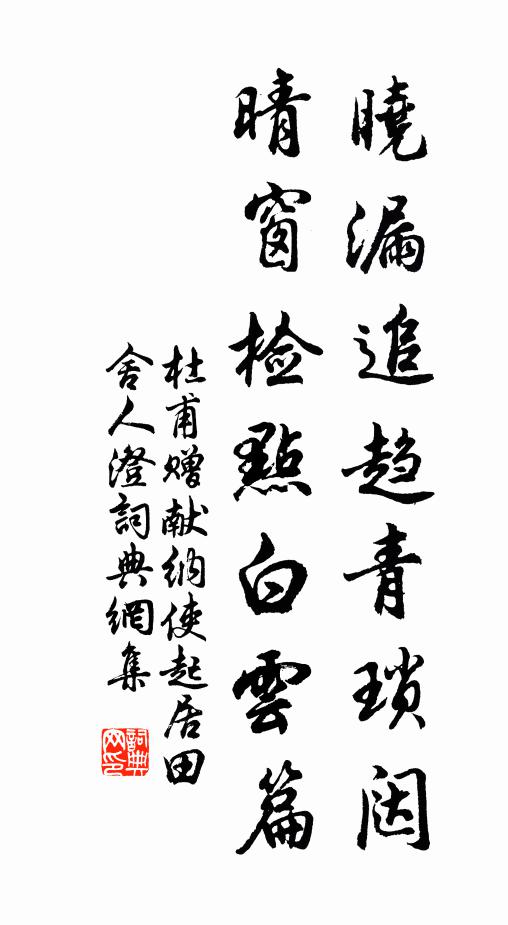 曉漏追趨青瑣闥
晴窗檢點白雲篇
杜甫贈献納使起居田
舍人澄詞典網集
詞典
网印